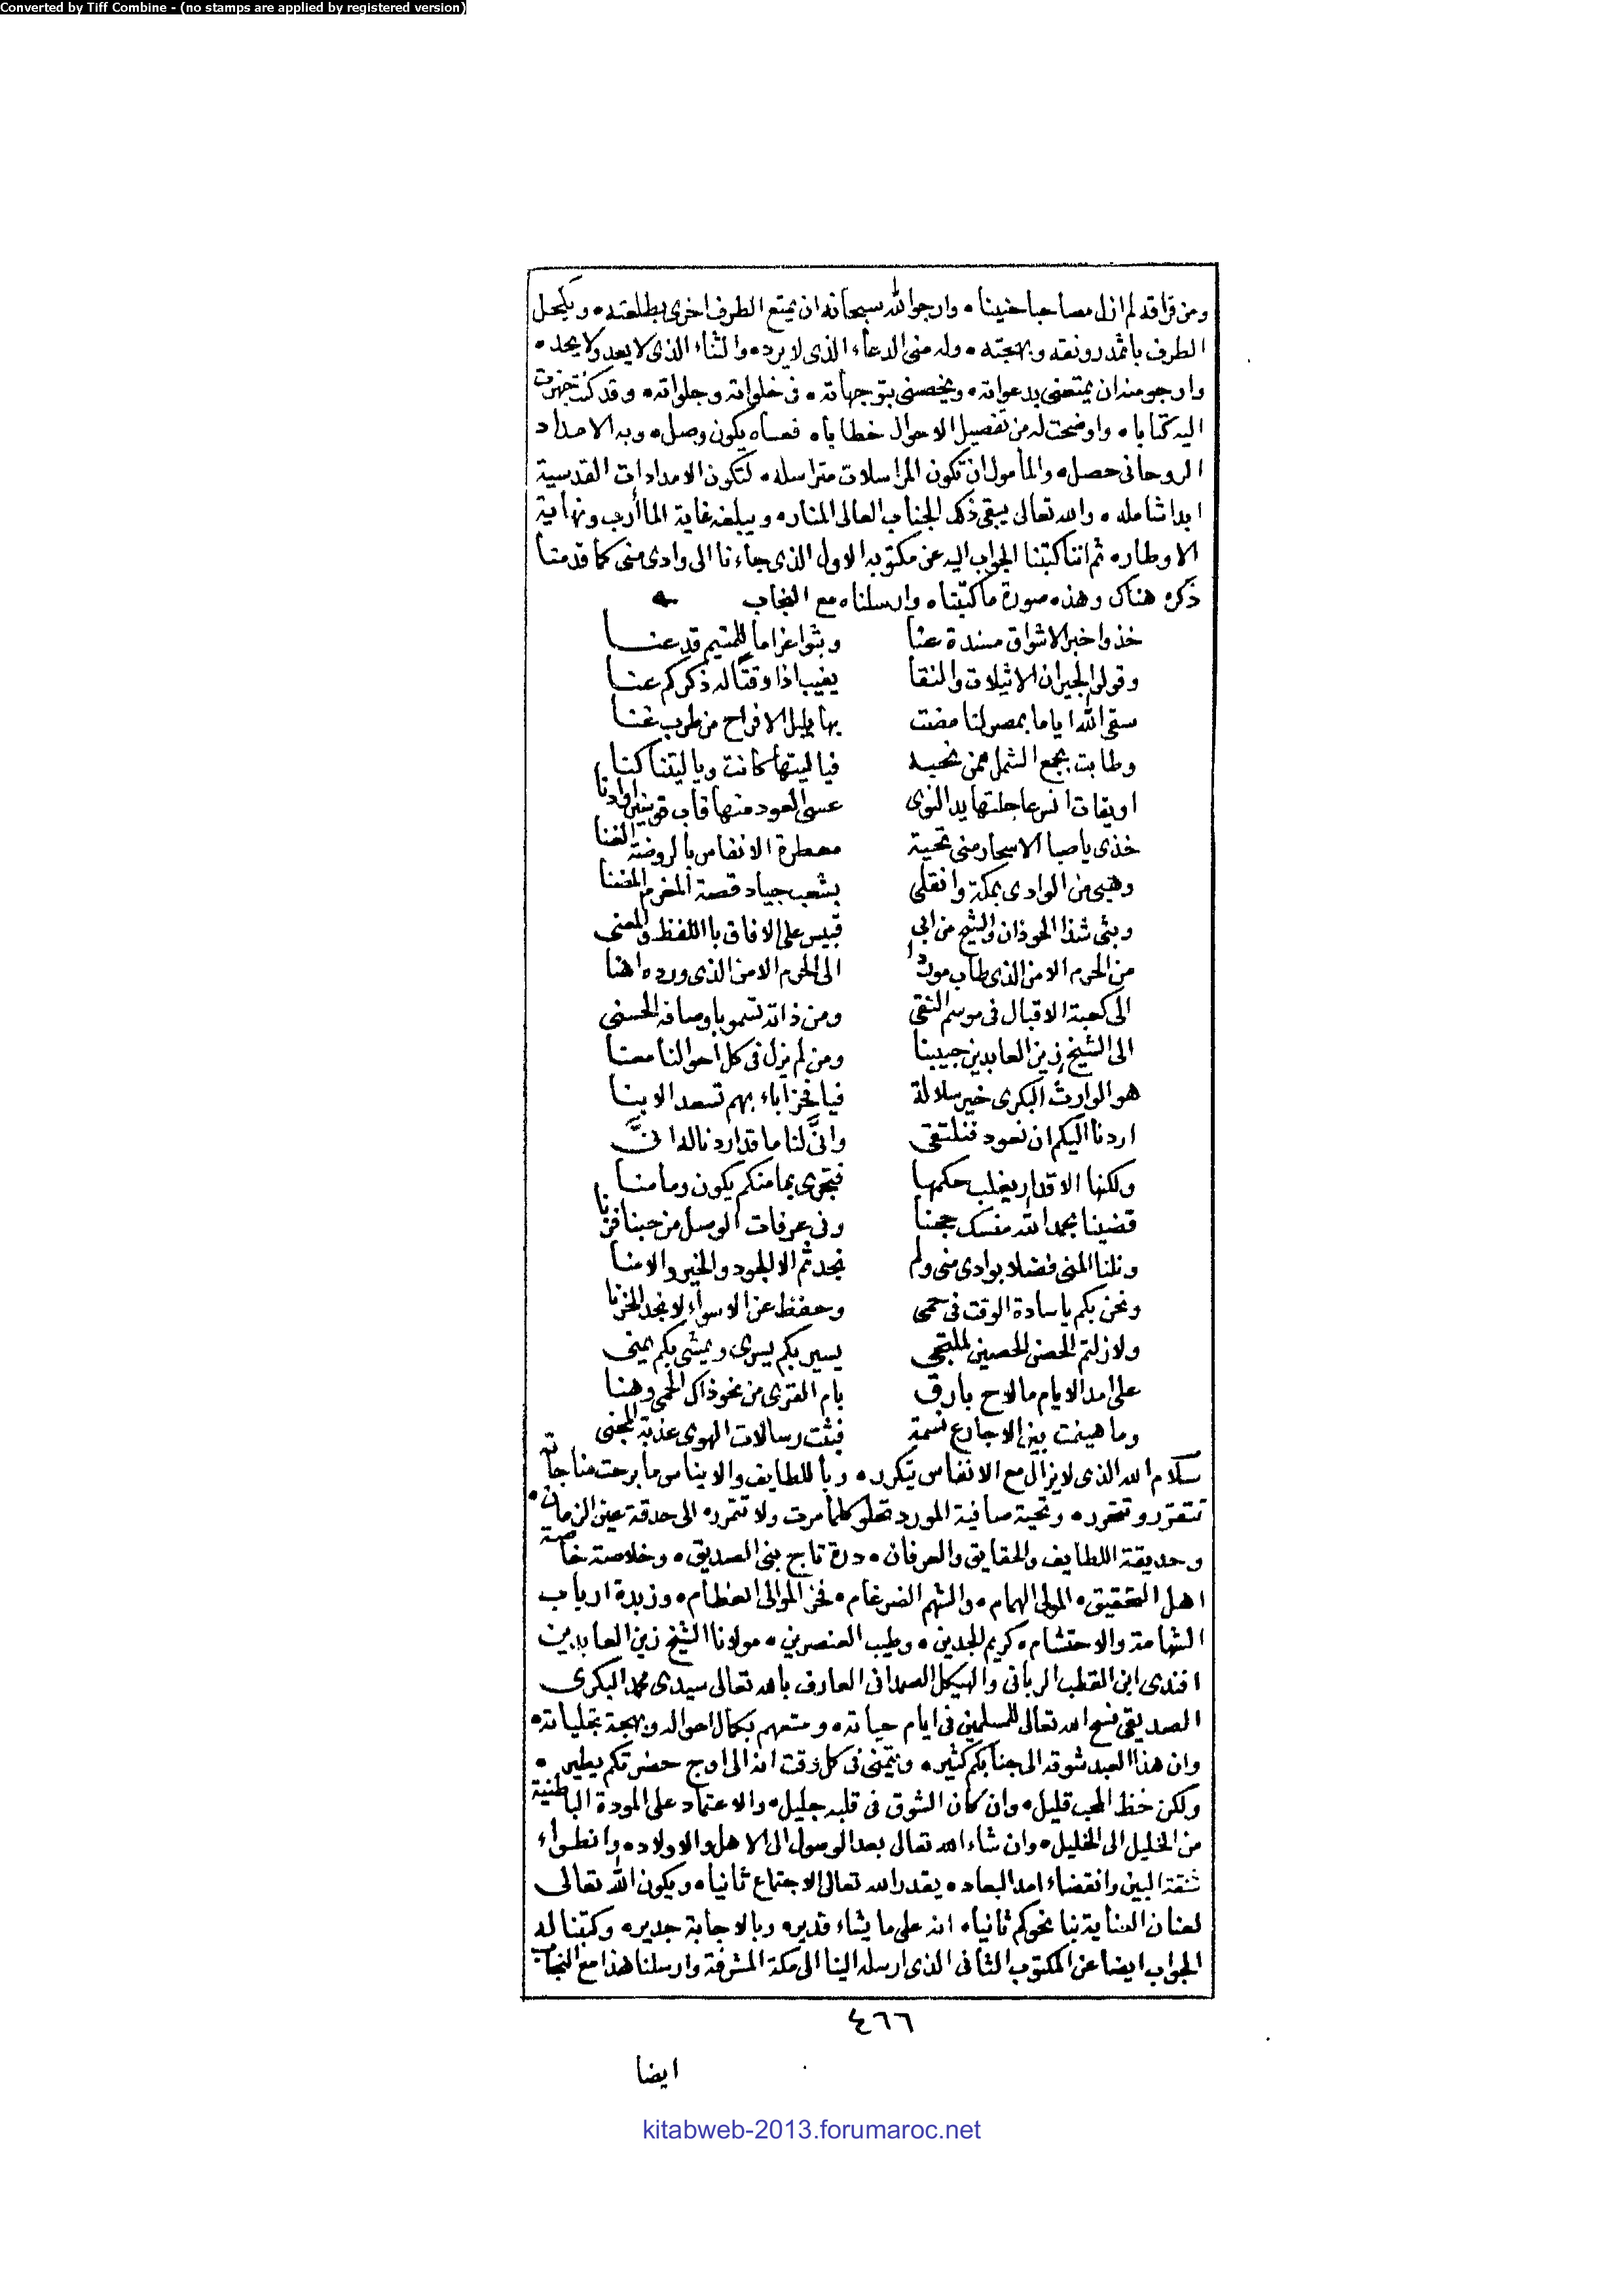 Converted by Tiff Combine - (no stamps are applied by registered version)
ومن فراقه لم ازل مصاحبا حنينا، وارجو الله سبحانه ان يمتع الطرف اخرى بطلعته، ويكحل
الطرف باثمد رونقه وبهجته، وله منى الدعاء الذى لا يرد، والثناء الذى لا يعد ولا يحد،
وارجو منه ان يمتعنى بدعواته، ويخصنى بتوجهاته، فى خلواته وجلواته، وقد كنت جهزت
اليه كتابا، واوضحت له من تفصيل الاحوال خطابا، فعساه يكون وصل، وبه الامداد
الروحانى حصل، والمأمول ان تكون المراسلات متراسله، لتكون الامدادات القدسية
ابدا شامله، والله تعالى يبقى ذلك الجناب العالى المنار، ويبلغه غاية المأرب ونهاية
الاوطار، ثم اننا كتبنا الجواب اليه عن مكتوبه الاول الذى جاءنا الى وادى منى كما قدمنا
ذكره هناك وهذه صورة ما كتبناه وارسلناه مع النجاب
خذوا خبر الاشواق مسندة عنا وبثوا غراما للمتيم قد عنا
وقولوا لجيران الاثيلات والنقا يغيب اذا وقتا له ذكركم عنا
سقى الله اياما بمصر لنا مضت بها بلبل الافراح من طرب غنا
وطابت بجمع الشمل ممن نحبه فيا ليتها كانت ويا ليتنا كنا
اويقات انس عاجلتها يد النوى عسى العود منها قاب قوسين او ادنا
خذى يا صبا الاسحار منى تحية معطرة الانفاس بالروضة الغنا
وهبى من الوادى بمكة وانقلى بشعب جياد قصة المغرم المضنا
وبثى شذا الحوذان والشيح من ابى قبيس على الافاق باللفظ والمعنى
من الحرم الامن الذى طاب موردا الى الحرم الامن الذى ورده اهنا
الى كعبة الاقبال فى موسم التقى ومن ذاته تسمو باوصافه الحسنى
الى الشيخ زين العابدين حبيبنا ومن لم يزل فى كل احوالنا معنا
هو الوارث البكرى خير سلالة فيا فخر اباء بهم تسعد الابنا
اردنا اليكم ان نعود فنلتقى وانى لنا ما قد اردنا له انى
ولكنها الاقدار يغلب حكمها فتجرى بما منكم يكون وما منا
قضينا بحمد الله منسك حجنا وفى عرفات الوصل من حبنا فزنا
ونلنا المنى فضلا بوادى منى ولم نجد ثم الا الجود والخير والامنا
ونحن بكم يا سادة الوقت فى حمى وحفظ عن الاسواء لا نجد الحزنا
ولا زلتم الحصن الحصين لملتجى يسير بكم يسرى ويمشى بكم يمنى
على امد الايام ما لاح بارق بام القرى من نحو ذاك الحمى وهنا
وما هينمت بين الاجارع نسمة فبثت رسالات الهوى عذبة المجنى
سلام الله الذى لا يزال مع الانفاس يتكرر، وبأللطايف والايناس ما برحت مناجاته
تتقرر وتتحرر، وتحية صافية المورد تحلو كلما مرت ولا تتمرر، الى حدقة عين الزمان،
وحديقة اللطايف والحقايق والعرفان، درة تاج بنى الصديق، وخلاصة خاصة
اهل التحقيق، المولى الهمام، والشهم الضرغام، فخر الموالى العظام، وزبدة ارباب
الشهامة والاحتشام، كريم الجدين، وطيب العنصرين، مولانا الشيخ زين العابدين
افندى ابن القطب الربانى والهيكل الصمدانى العارف بالله تعالى سيدى محمد البكرى
الصديقى فسح الله تعالى للمسلمين فى ايام حياته، ومتعهم بكمال احواله وبهجة تجلياته،
وان هذا العبد شوقه الى جنابكم كثير، ويتمنى فى كل وقت انه الى اوج حضرتكم يطير،
ولكن حظ المحب قليل، وان كان الشوق فى قلبه جليل، والاعتماد على المودة الباطنية
من الخليل الى الخليل، وان شاء الله تعالى بعد الوصول الى الاهل والاولاد، وانطواء
شقة البين وانقضاء امد البعاد، يقدر الله تعالى الاجتماع ثانيا، ويكون الله تعالى
لعنان العناية بنا نحوكم ثانيا، انه على ما يشاء قدير، وبالاجابة جدير، وكتبنا له
الجواب ايضا عن المكتوب الثانى الذى ارسله الينا الى مكة المشرفة وارسلنا هذا مع النجاب
٤٦٦
ايضا
kitabweb-2013.forumaroc.net